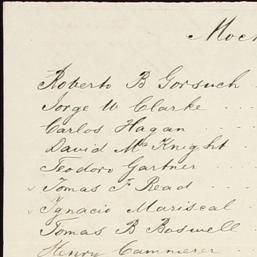 Roberto B Gorsuch
Jorge W Clarke
Carlos Hagan
David McKnight
Teodoro Gartner
Tomas F Read
Ignacio Mariscal
Tomas B Boswell
Henry Cammerer